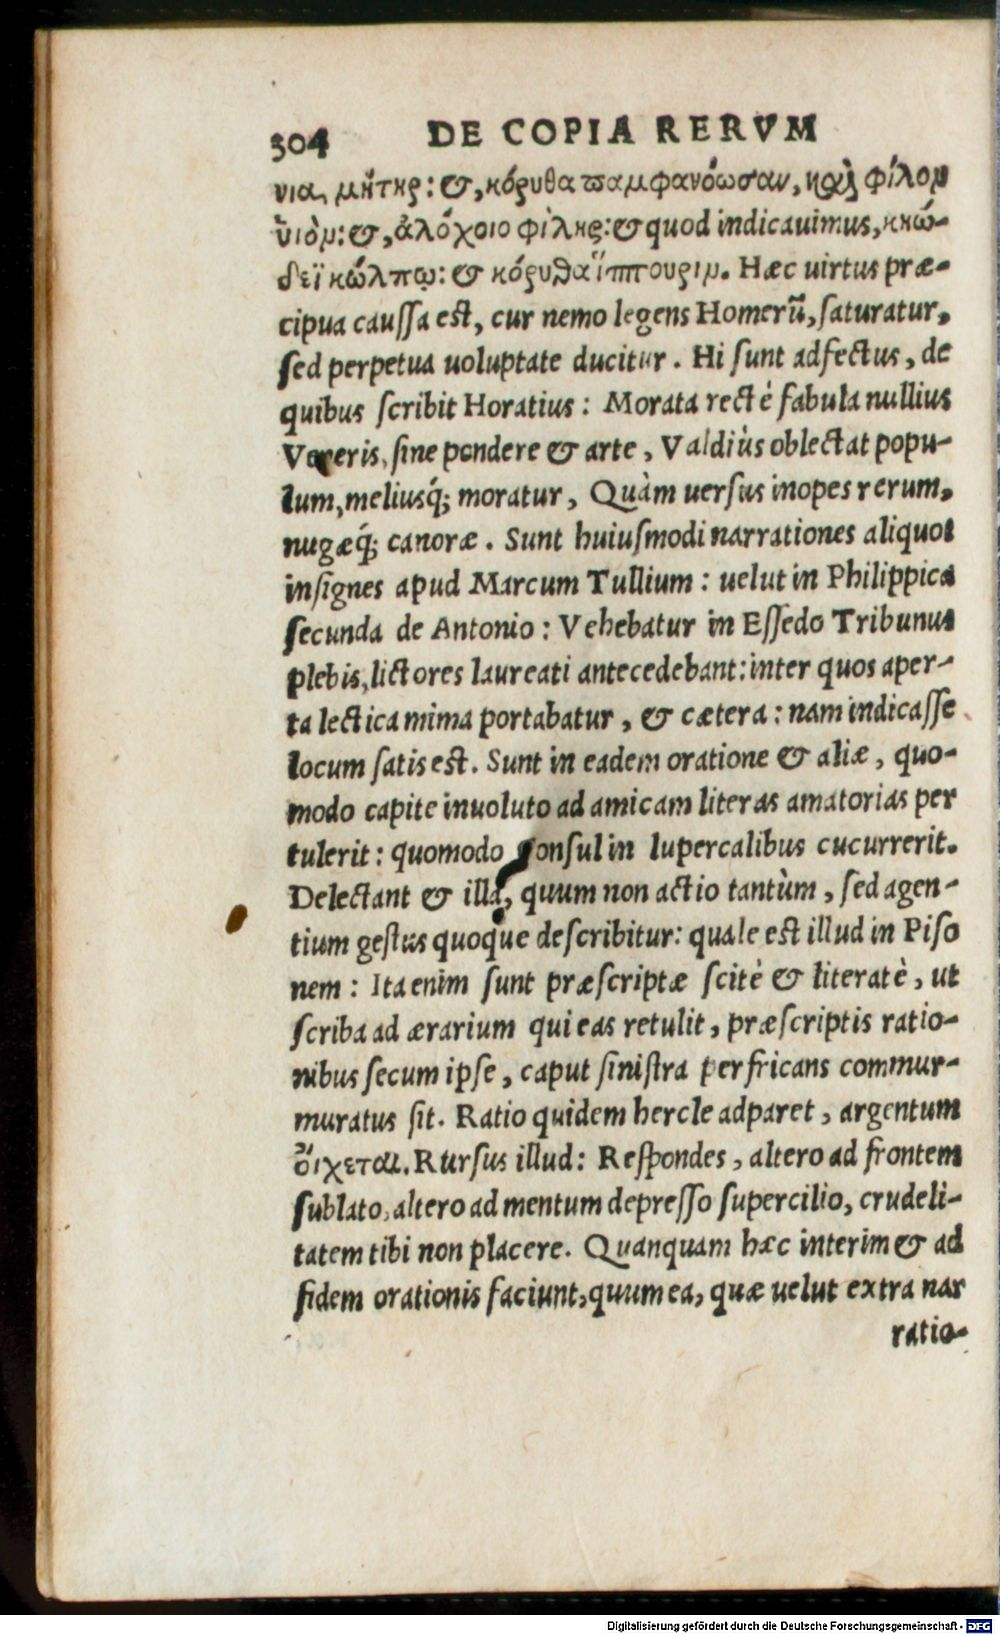 304 DE COPIA RERVM
νια, μήτηρ: &, κόρυθα παμφανόωσαν, καὶ φίλον
ὑιὸν: &, ἀλόχοιο φίλης: & quod indicauimus, κηώ-
δεϊ κώλπῳ: & κόρυθα ἵππουριν. Hæc uirtus præ-
cipua caussa est, cur nemo legens Homerū, saturatur,
sed perpetua uoluptate ducitur. Hi sunt adfectus, de
quibus scribit Horatius: Morata rectè fabula nullius
Veneris, sine pondere & arte, Valdiùs oblectat popu-
lum, meliusq́; moratur, Quàm uersus inopes rerum,
nugæq́; canoræ. Sunt huiusmodi narrationes aliquot
insignes apud Marcum Tullium: uelut in Philippica
secunda de Antonio: Vehebatur in Essedo Tribunus
plebis, lictores laureati antecedebant: inter quos aper-
ta lectica mima portabatur, & cætera: nam indicasse
locum satis est. Sunt in eadem oratione & aliæ, quo-
modo capite inuoluto ad amicam literas amatorias per
tulerit: quomodo Consul in lupercalibus cucurrerit.
Delectant & illa, quum non actio tantùm, sed agen-
tium gestus quoque describitur: quale est illud in Piso
nem: Ita enim sunt præscriptæ scitè & literatè, ut
scriba ad ærarium qui eas retulit, præscriptis ratio-
nibus secum ipse, caput sinistra perfricans commur-
muratus sit. Ratio quidem hercle adparet, argentum
ὄιχεται. Rursus illud: Respondes, altero ad frontem
sublato, altero ad mentum depresso supercilio, crudeli-
tatem tibi non placere. Quanquam hæc interim & ad
fidem orationis faciunt, quum ea, quæ uelut extra nar
ratio-
Digitalisierung gefördert durch die Deutsche Forschungsgemeinschaft - DFG